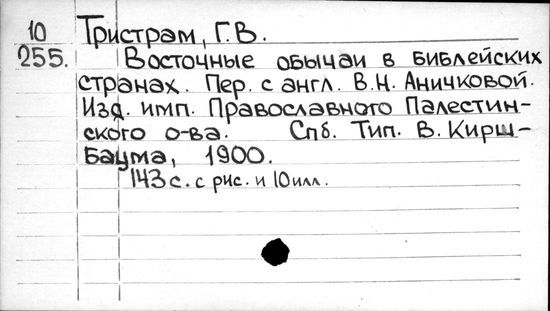 10 Тристрам, Г.В.
255. Восточные обычаи в библейских
странах. Пер. с англ. В.Н. Аничковой.
Изд. имп. Православного Палестин-
ского о-ва. Спб. Тип. В. Кирш-
баума, 1900.
143 с. с рис. и 10 илл.